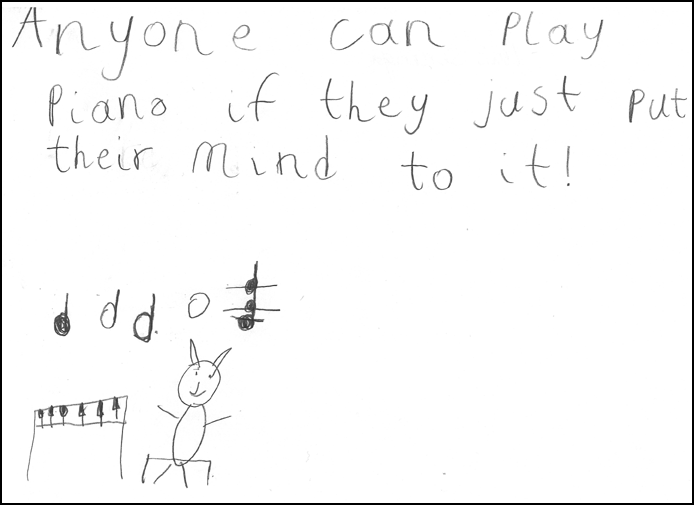 Anyone can play
piano if they just put
their mind to it!